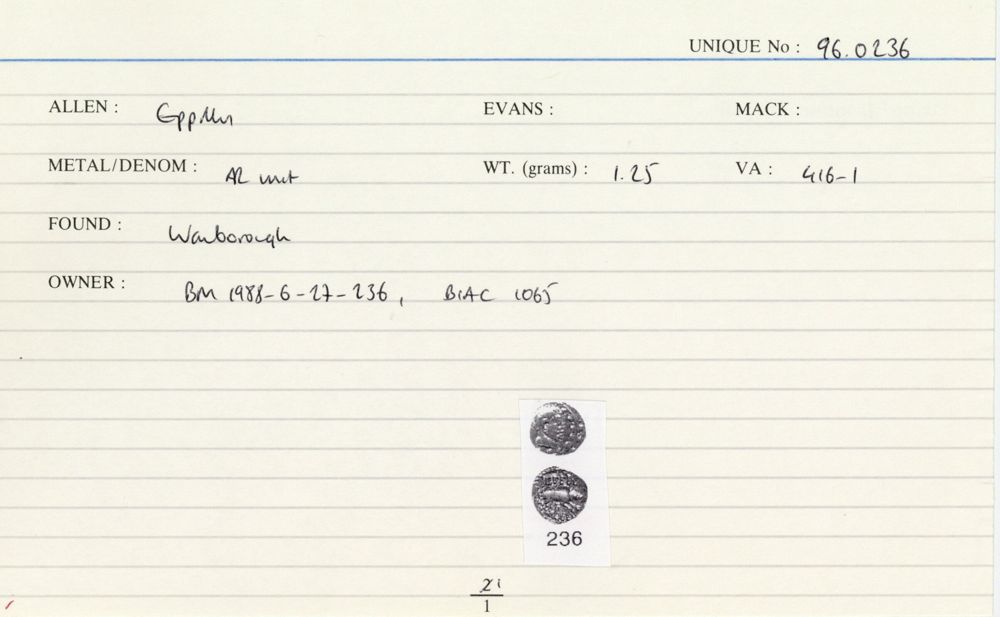 UNIQUE No : 96.0236
ALLEN : Eppillus EVANS : MACK :
METAL/DENOM : AR unit WT. (grams) : 1.25 VA : 416-1
FOUND : Wanborough
OWNER : BM 1988-6-27-236, BIAC 1065
236
1